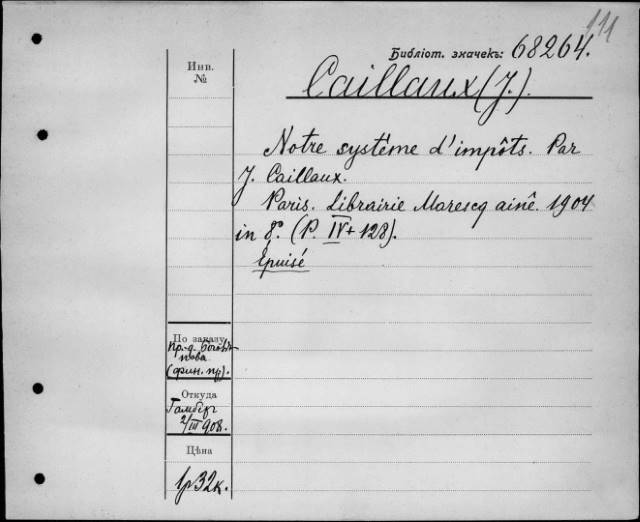 111
Библіот. значекъ: 68264.
Инв.
№
Caillaux (J.).
Notre système d'impôts. Par
J. Caillaux.
Paris. Librairie Marescq ainê. 1904
in 8°. (P. IV + 128).
Epuisé
По заказу
пр.-д.
(фин. пр).
Откуда
2/III 908.
Цѣна
1р 32к.